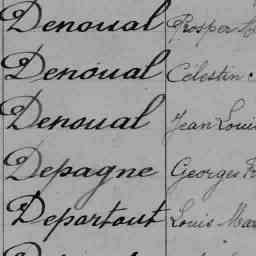 Denoual Prosper
Denoual Célestin
Denoual Jean Louis
Depagne Georges
Departout Louis